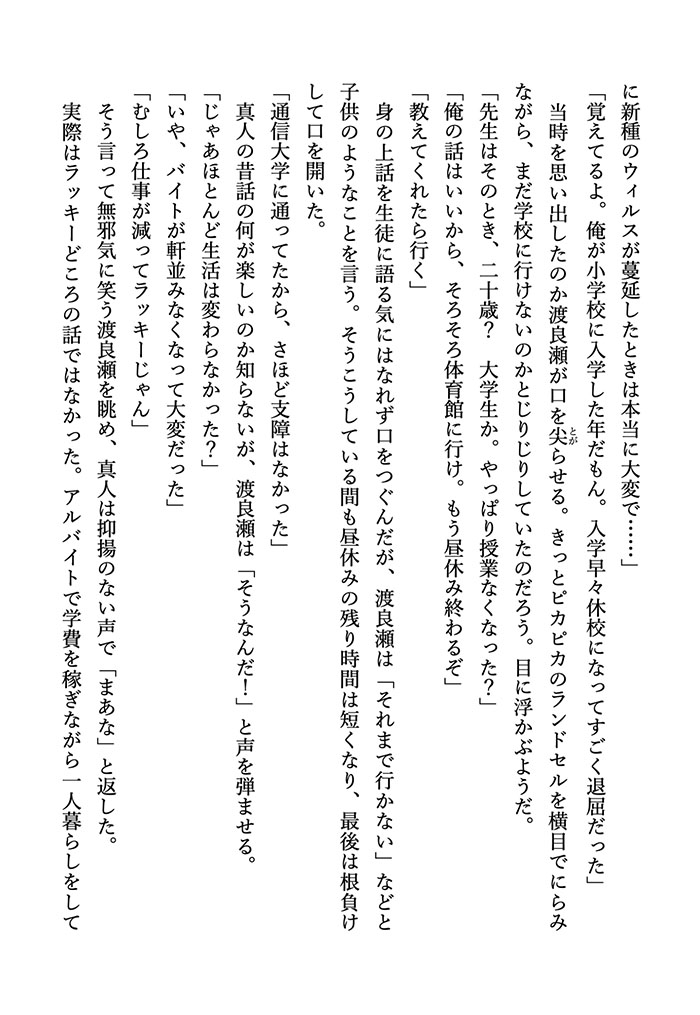 に新種のウィルスが蔓延したときは本当に大変で……」
「覚えてるよ。俺が小学校に入学した年だもん。入学早々休校になってすごく退屈だった」
当時を思い出したのか渡良瀬が口を尖らせる。きっとピカピカのランドセルを横目でにらみ
とが
ながら、まだ学校に行けないのかとじりじりしていたのだろう。目に浮かぶようだ。
「先生はそのとき、二十歳？　大学生か。やっぱり授業なくなった？」
「俺の話はいいから、そろそろ体育館に行け。もう昼休み終わるぞ」
「教えてくれたら行く」
身の上話を生徒に語る気にはなれず口をつぐんだが、渡良瀬は「それまで行かない」などと
子供のようなことを言う。そうこうしている間も昼休みの残り時間は短くなり、最後は根負け
して口を開いた。
「通信大学に通ってたから、さほど支障はなかった」
真人の昔話の何が楽しいのか知らないが、渡良瀬は「そうなんだ！」と声を弾ませる。
「じゃあほとんど生活は変わらなかった？」
「いや、バイトが軒並みなくなって大変だった」
「むしろ仕事が減ってラッキーじゃん」
そう言って無邪気に笑う渡良瀬を眺め、真人は抑揚のない声で「まあな」と返した。
実際はラッキーどころの話ではなかった。アルバイトで学費を稼ぎながら一人暮らしをして